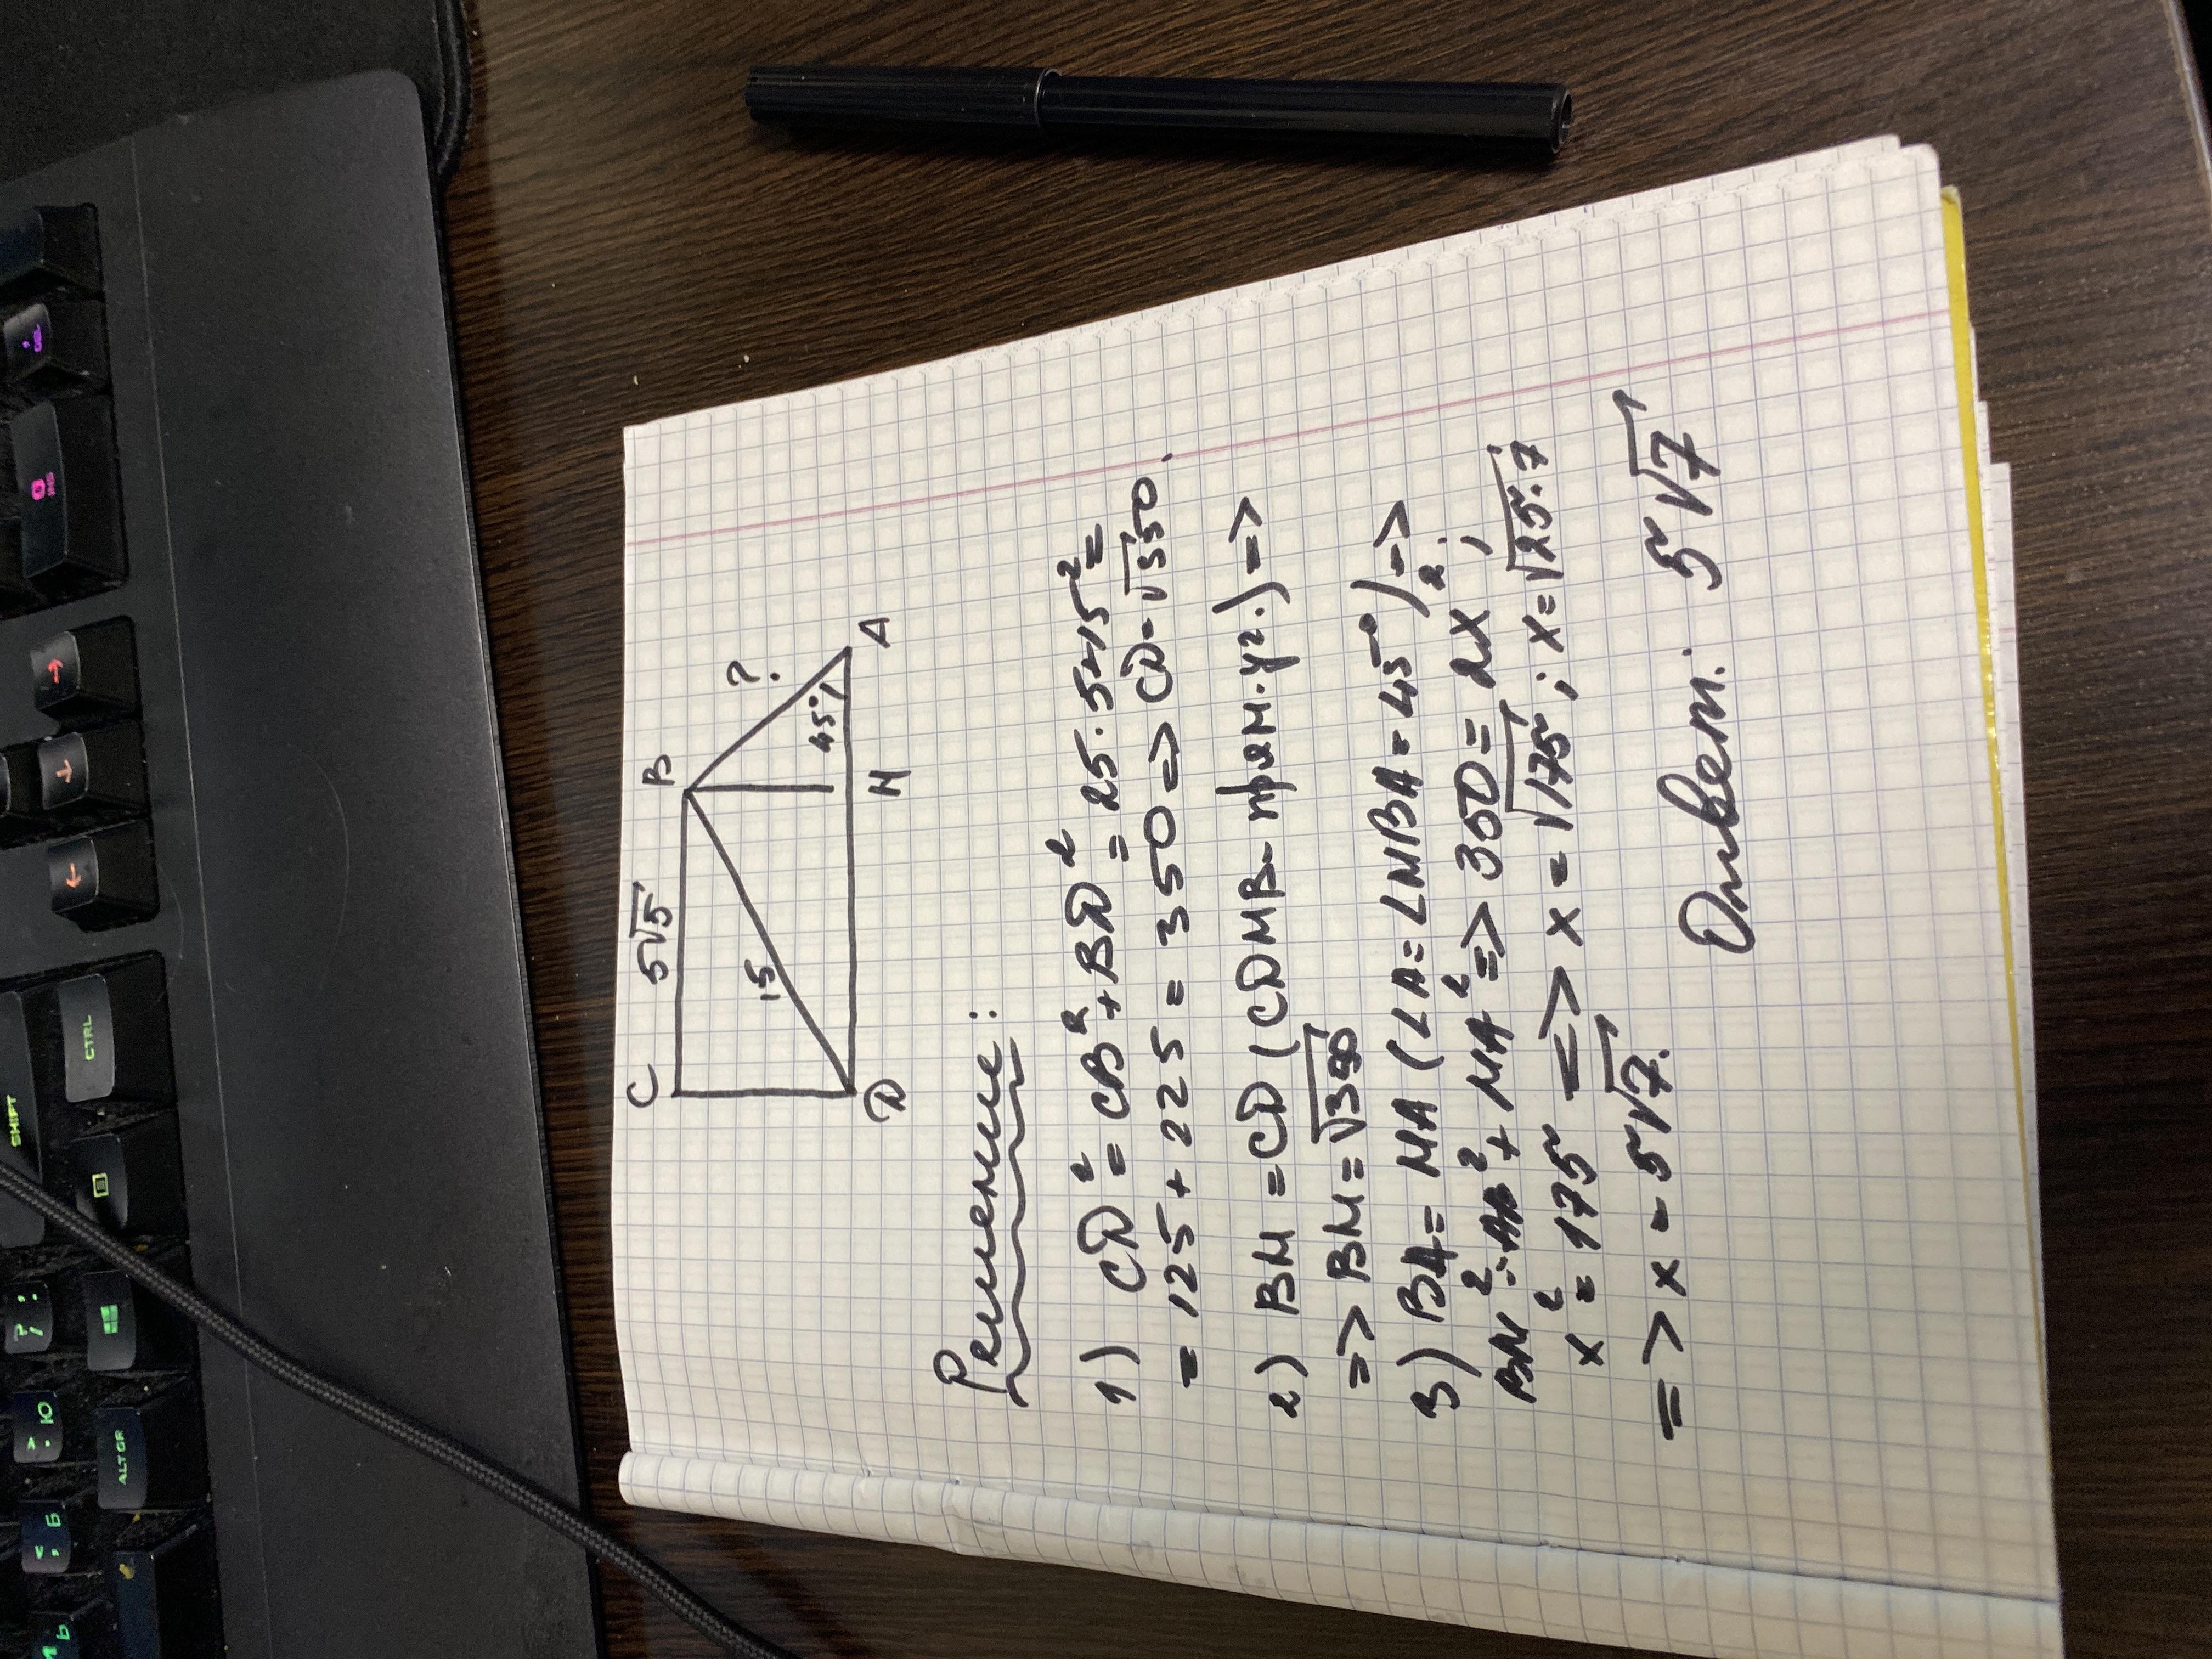 C 5√5 B
15
?
45°
D H A
Решение:
1) CD² = CB² + BD² = 25·5+15² =
= 125 + 225 = 350 => CD = √350.
2) BH = CD (CDHB - прям.уг.) =>
=> BH = √350
3) BA = HA (∠A = ∠HBA = 45°) =>
BH² = AB² + HA² => 350 = 2x²;
x² = 175 => x = √175; x = √25·7
=> x = 5√7.
Ответ: 5√7
DEL
0
INS
SHIFT
CTRL
ALT GR
?
> Ю
.
< Б
,
Ь